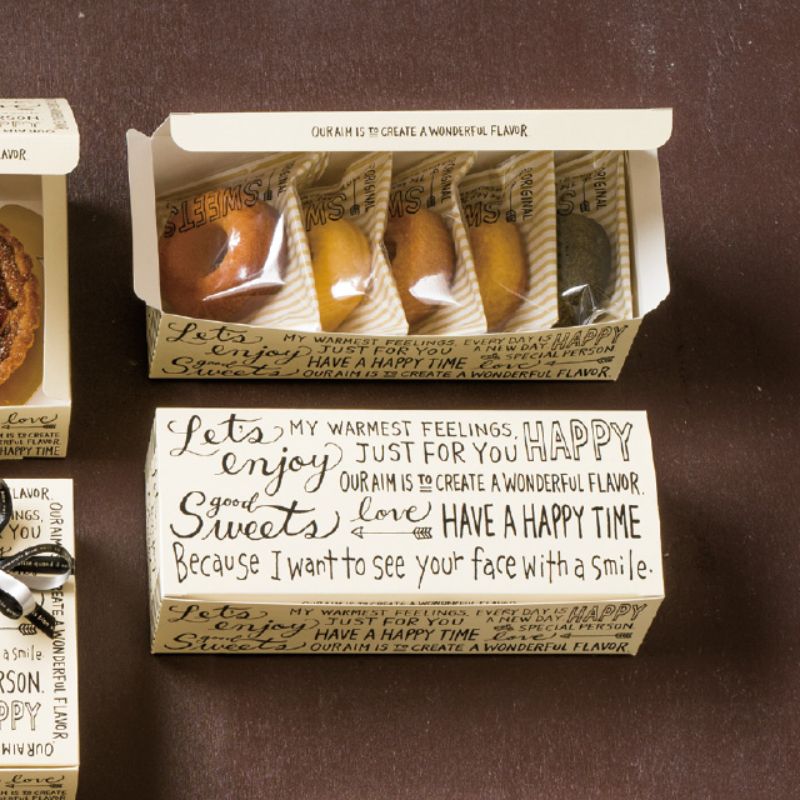 OUR AIM IS TO CREATE A WONDERFUL FLAVOR.
SWEETS
ORIGINAL
ORIGINAL
ORIGINAL
ORIGINAL
Let's enjoy good Sweets
MY WARMEST FEELINGS, EVERY DAY IS A NEW DAY. HAPPY
JUST FOR YOU SPECIAL PERSON
HAVE A HAPPY TIME love
OUR AIM IS TO CREATE A WONDERFUL FLAVOR.
Let's enjoy
MY WARMEST FEELINGS, HAPPY
JUST FOR YOU
OUR AIM IS TO CREATE A WONDERFUL FLAVOR.
good Sweets love HAVE A HAPPY TIME
Because I want to see your face with a smile.
Let's enjoy good Sweets
MY WARMEST FEELINGS, EVERY DAY IS A NEW DAY. HAPPY
JUST FOR YOU SPECIAL PERSON
HAVE A HAPPY TIME love
OUR AIM IS TO CREATE A WONDERFUL FLAVOR.
AVOR.
love
IS TO CREATE
HAPPY TIME
LAVOR.
INGS,
YOU
OUR AIM IS TO CREATE A WONDERFUL FLAVOR
a smile.
RSON.
PPY
OUR AIM
love